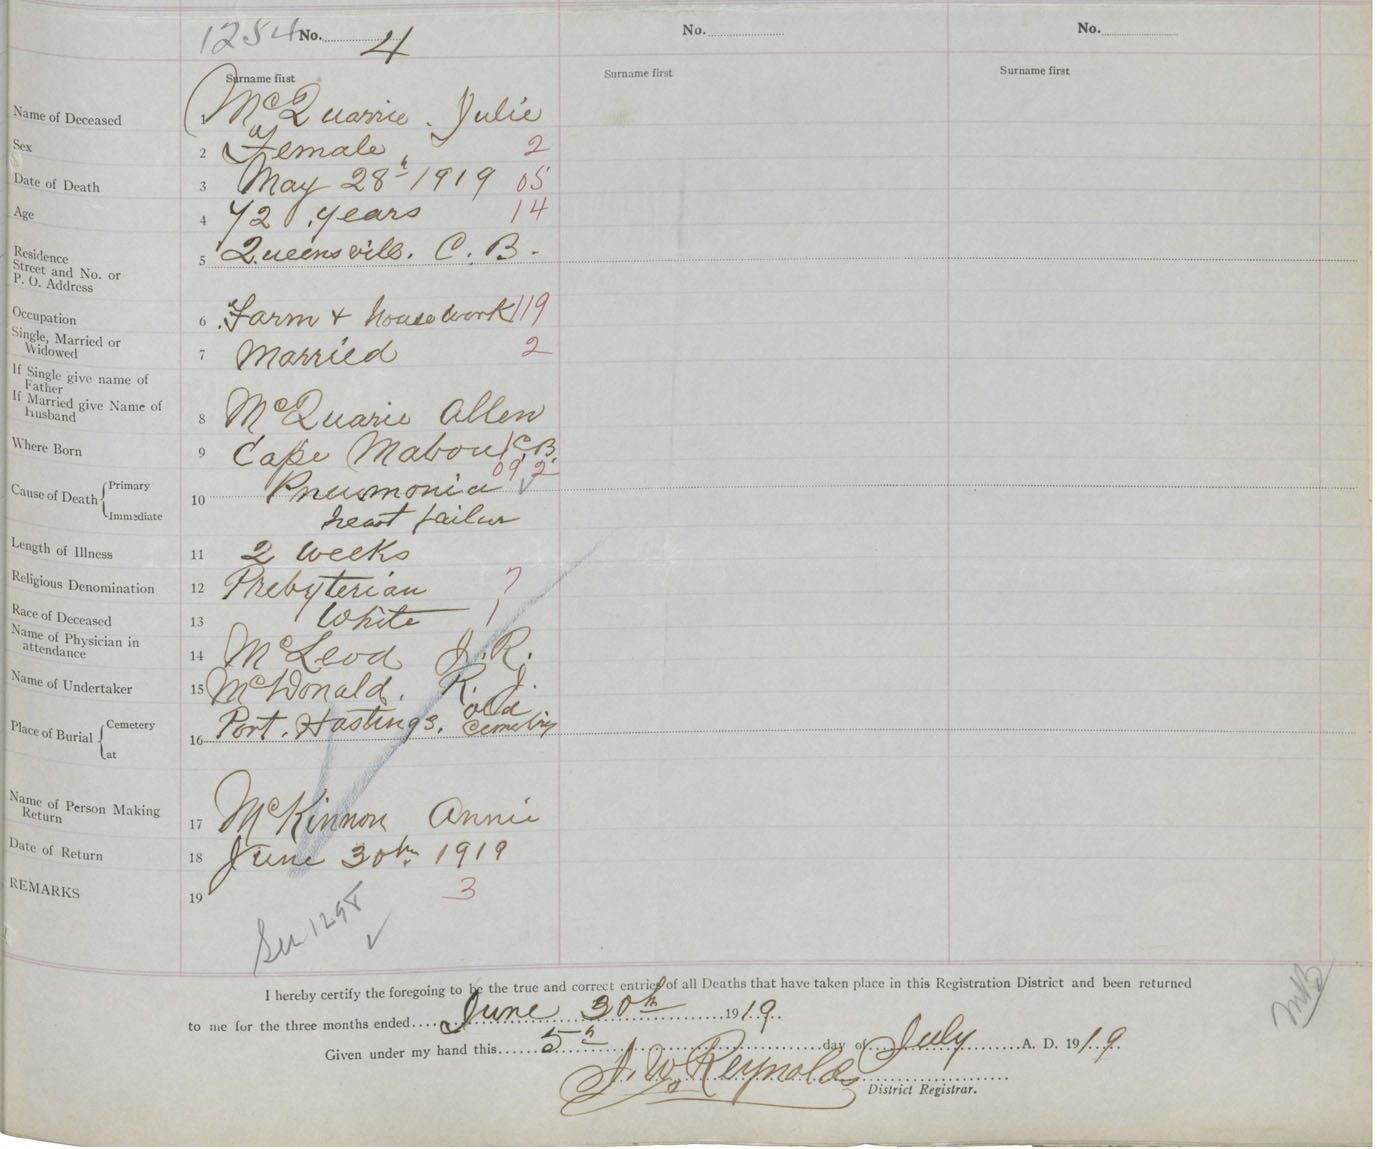 1254 No. 4
No.
No.
Surname first
Surname first
Surname first
Name of Deceased 1 McQuarrie . Julie
Sex 2 Female 2
Date of Death 3 May 28th 1919 05
Age 4 72 years 14
Residence
Street and No. or
P. O. Address
5 Queensville. C. B.
Occupation 6 Farm + housework 119
Single, Married or
Widowed
7 Married 2
If Single give name of
Father
If Married give Name of
Husband
8 McQuarie Allen
Where Born 9 Cape Mabou C.B. 1
09 2
Cause of Death Primary 10 Pneumonia
Immediate heart failur
Length of Illness 11 2 weeks
Religious Denomination 12 Presbyterian 7
Race of Deceased 13 White 1
Name of Physician in
attendance
14 McLeod J. R.
Name of Undertaker 15 McDonald. R. J.
Place of Burial Cemetery 16 Port. Hastings. old
cemetry
at
Name of Person Making
Return
17 McKinnon Annie
Date of Return 18 June 30th 1919
REMARKS 19 3
See 1298
I hereby certify the foregoing to be the true and correct entries of all Deaths that have taken place in this Registration District and been returned
to me for the three months ended June 30th 1919.
Given under my hand this 5th day of July A. D. 1919
J. W. Reynolds
District Registrar.